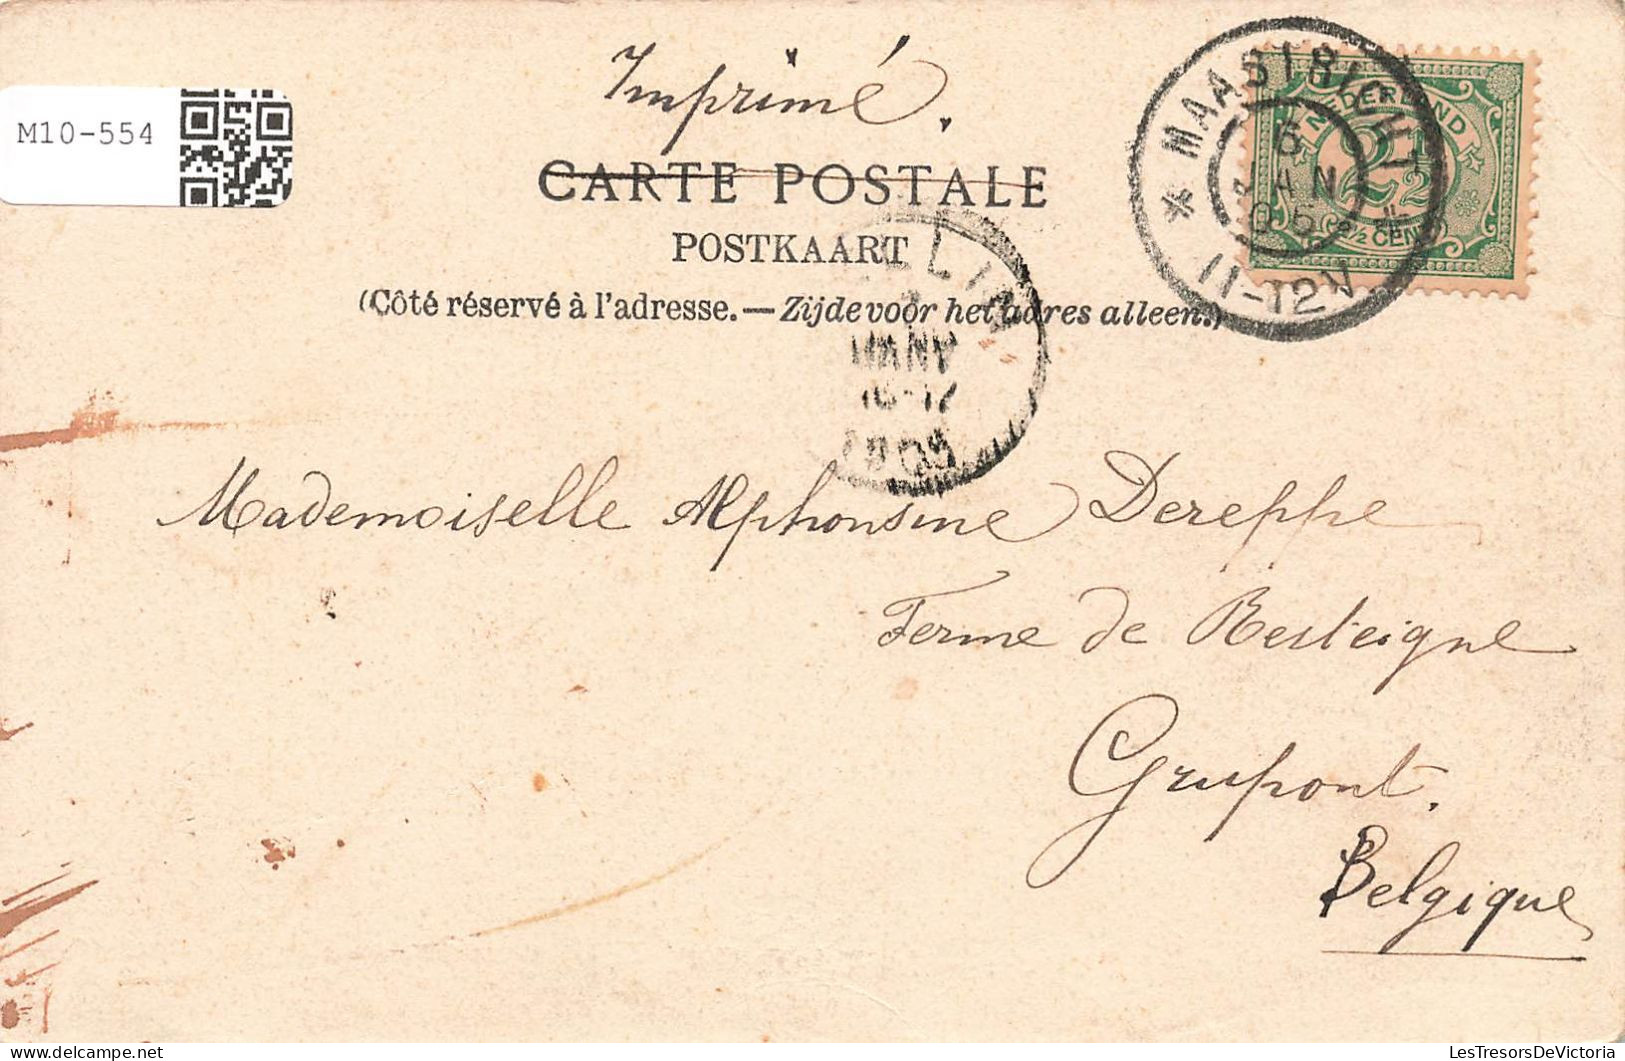 M10-554
Imprimé.
CARTE POSTALE
POSTKAART
(Côté réservé à l'adresse. — Zijde voor het adres alleen.)
MAASTRICHT
6
JAN
05
11-12V
NEDERLAND
2 1/2
JANV
16-17
1905
Mademoiselle Alphonsine Dereppe
Ferme de Resteigne
Grupont.
Belgique
LesTresorsDeVictoria